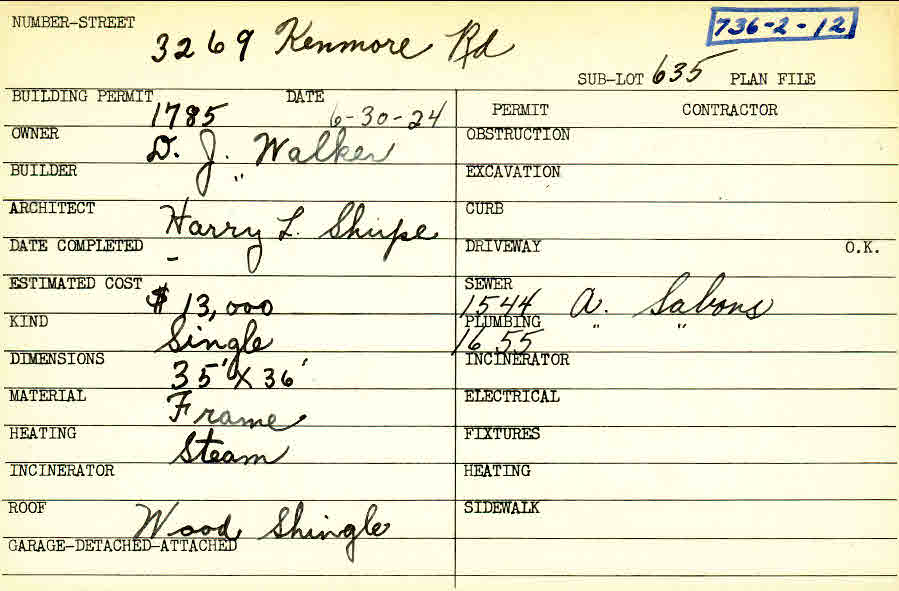 NUMBER-STREET
3269 Kenmore Rd
736-2-12
SUB-LOT 635 PLAN FILE
BUILDING PERMIT 1785 DATE 6-30-24
PERMIT CONTRACTOR
OWNER D. J. Walker
OBSTRUCTION
BUILDER "
EXCAVATION
ARCHITECT Harry L. Shupe
CURB
DATE COMPLETED -
DRIVEWAY O.K.
ESTIMATED COST $ 13,000
SEWER 1544 A. Sabons
KIND Single
PLUMBING 1655 " "
DIMENSIONS 35' X 36'
INCINERATOR
MATERIAL Frame
ELECTRICAL
HEATING Steam
FIXTURES
INCINERATOR
HEATING
ROOF Wood Shingle
SIDEWALK
GARAGE-DETACHED-ATTACHED